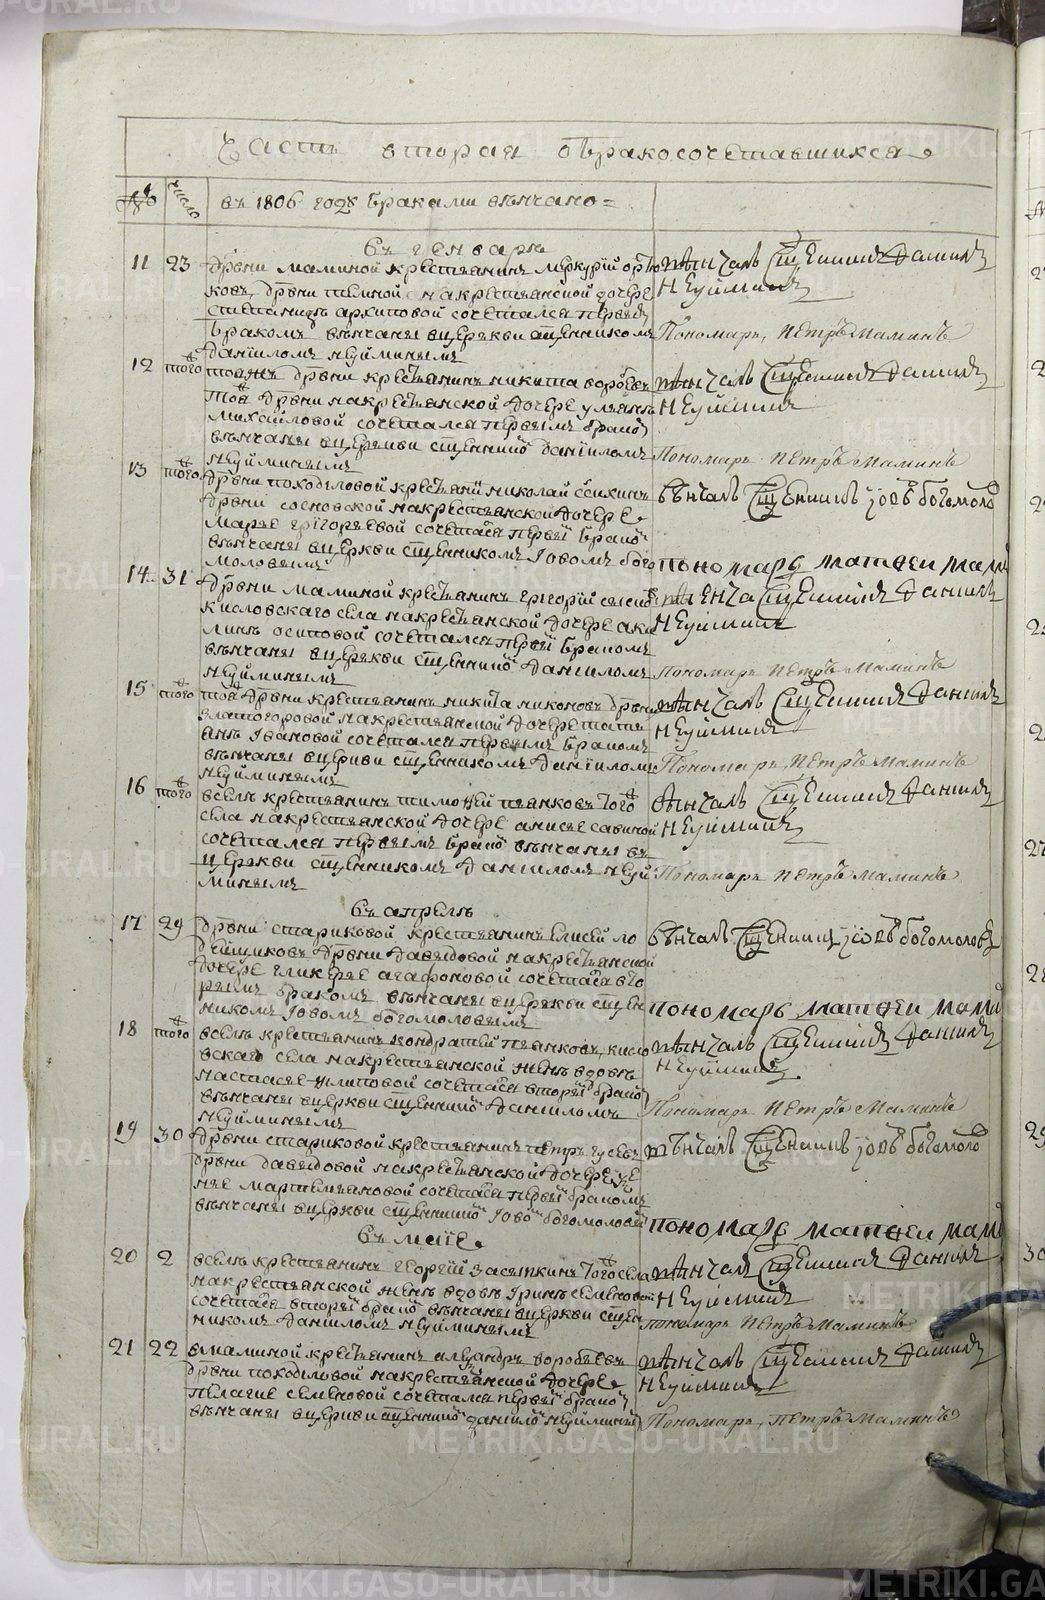 Часть вторая о бракосочетавшихся
№ число въ 1806 году браками венчано =
Въ генваре
11 23 дрвни маминой крестьянинъ меркурий
ковъ, дрвни темной на крестьянской дочере
степаниде архиповой сочетался первымъ
бракомъ венчаны вцеркви сщенникомъ
данииломъ неуйминымъ
венчалъ Сщенникъ Данiилъ
Неуйминъ
Пономарь Петръ Маминъ
12 того тояжъ дрвни крестьянинъ никита воробьевъ
той дрвни на крестьянской дочере ульяне
михайловой сочетался первымъ бракомъ
венчаны вцеркви сщенникомъ данииломъ
неуйминымъ
венчалъ Сщенникъ Данiилъ
Неуйминъ
Пономарь Петръ Маминъ
13 того дрвни походиловой крестьянинъ николай
дрвни сосновской на крестьянской дочере
марье григорьевой сочетался первымъ бракомъ
венчаны вцеркви сщенникомъ Iовомъ бого
моловымъ
венчалъ Сщенникъ Iовъ богомоловъ
пономарь матвеи мами
14 31 дрвни маминой крестьянинъ григорий
кисловскаго села на крестьянской дочере аки
лине осиповой сочетался первымъ бракомъ
венчаны вцеркви сщенникомъ данииломъ
неуйминымъ
венча Сщенникъ Данiилъ
Неуйминъ
Пономарь Петръ Маминъ
15 того той дрвни крестьянинъ никита никоновъ дрвни
златогоровой на крестьянской дочере тать
яне Iвановой сочетался первымъ бракомъ
венчаны вцеркви сщенникомъ данииломъ
неуйминымъ
венчалъ Сщенникъ Данiилъ
Неуйминъ
Пономарь Петръ Маминъ
16 того вселе крестьянинъ тимофей пьянковъ того
села на крестьянской дочере анисье савиной
сочетался первымъ бракомъ венчаны въ
церкви сщенникомъ данииломъ неуй
минымъ
венчалъ Сщенникъ Данiилъ
Неуйминъ
Пономарь Петръ Маминъ
Въ апреле
17 29 дрвни стариковой крестьянинъ елисей ло
щиковъ дрвни давыдовой на крестьянской
дочере гликерье агафоновой сочетался вто
рымъ бракомъ венчаны вцеркви сщен
никомъ Iовомъ богомоловымъ
венчалъ Сщенникъ Iовъ богомоловъ
пономарь матвеи мами
18 того вселе крестьянинъ кондратей пьянковъ, кисло
вскаго села на крестьянской жене вдове
настасье филиповой сочетался вторымъ бракомъ
венчаны вцеркви сщенникомъ данииломъ
неуйминымъ
венчалъ Сщенникъ Данiилъ
Неуйминъ
Пономарь Петръ Маминъ
19 30 дрвни стариковой крестьянинъ петръ гусевъ
дрвни давыдовой на крестьянской дочере
мартемьяновой сочетался первымъ бракомъ
венчаны вцеркви сщенникомъ Iовомъ богомоловымъ
венчалъ Сщенникъ Iовъ богомоло
пономарь матвеи мами
Въ маiе
20 2 вселе крестьянинъ георгий засыпкинъ того села
на крестьянской жене вдове Iрине семеновой
сочетался вторымъ бракомъ венчаны вцеркви сщен
никомъ данииломъ неуйминымъ
венчалъ Сщенникъ Данiилъ
Неуйминъ
пономарь Петръ Маминъ
21 22 вмаминой крестьянинъ александръ воробьевъ
дрвни походиловой на крестьянской дочере
пелагие семеновой сочетался первымъ бракомъ
венчаны вцеркви сщенникомъ данииломъ неуйминымъ
венчалъ Сщенникъ Данiилъ
Неуйминъ
Пономарь Петръ Маминъ
METRIKI.GASO-URAL.RU